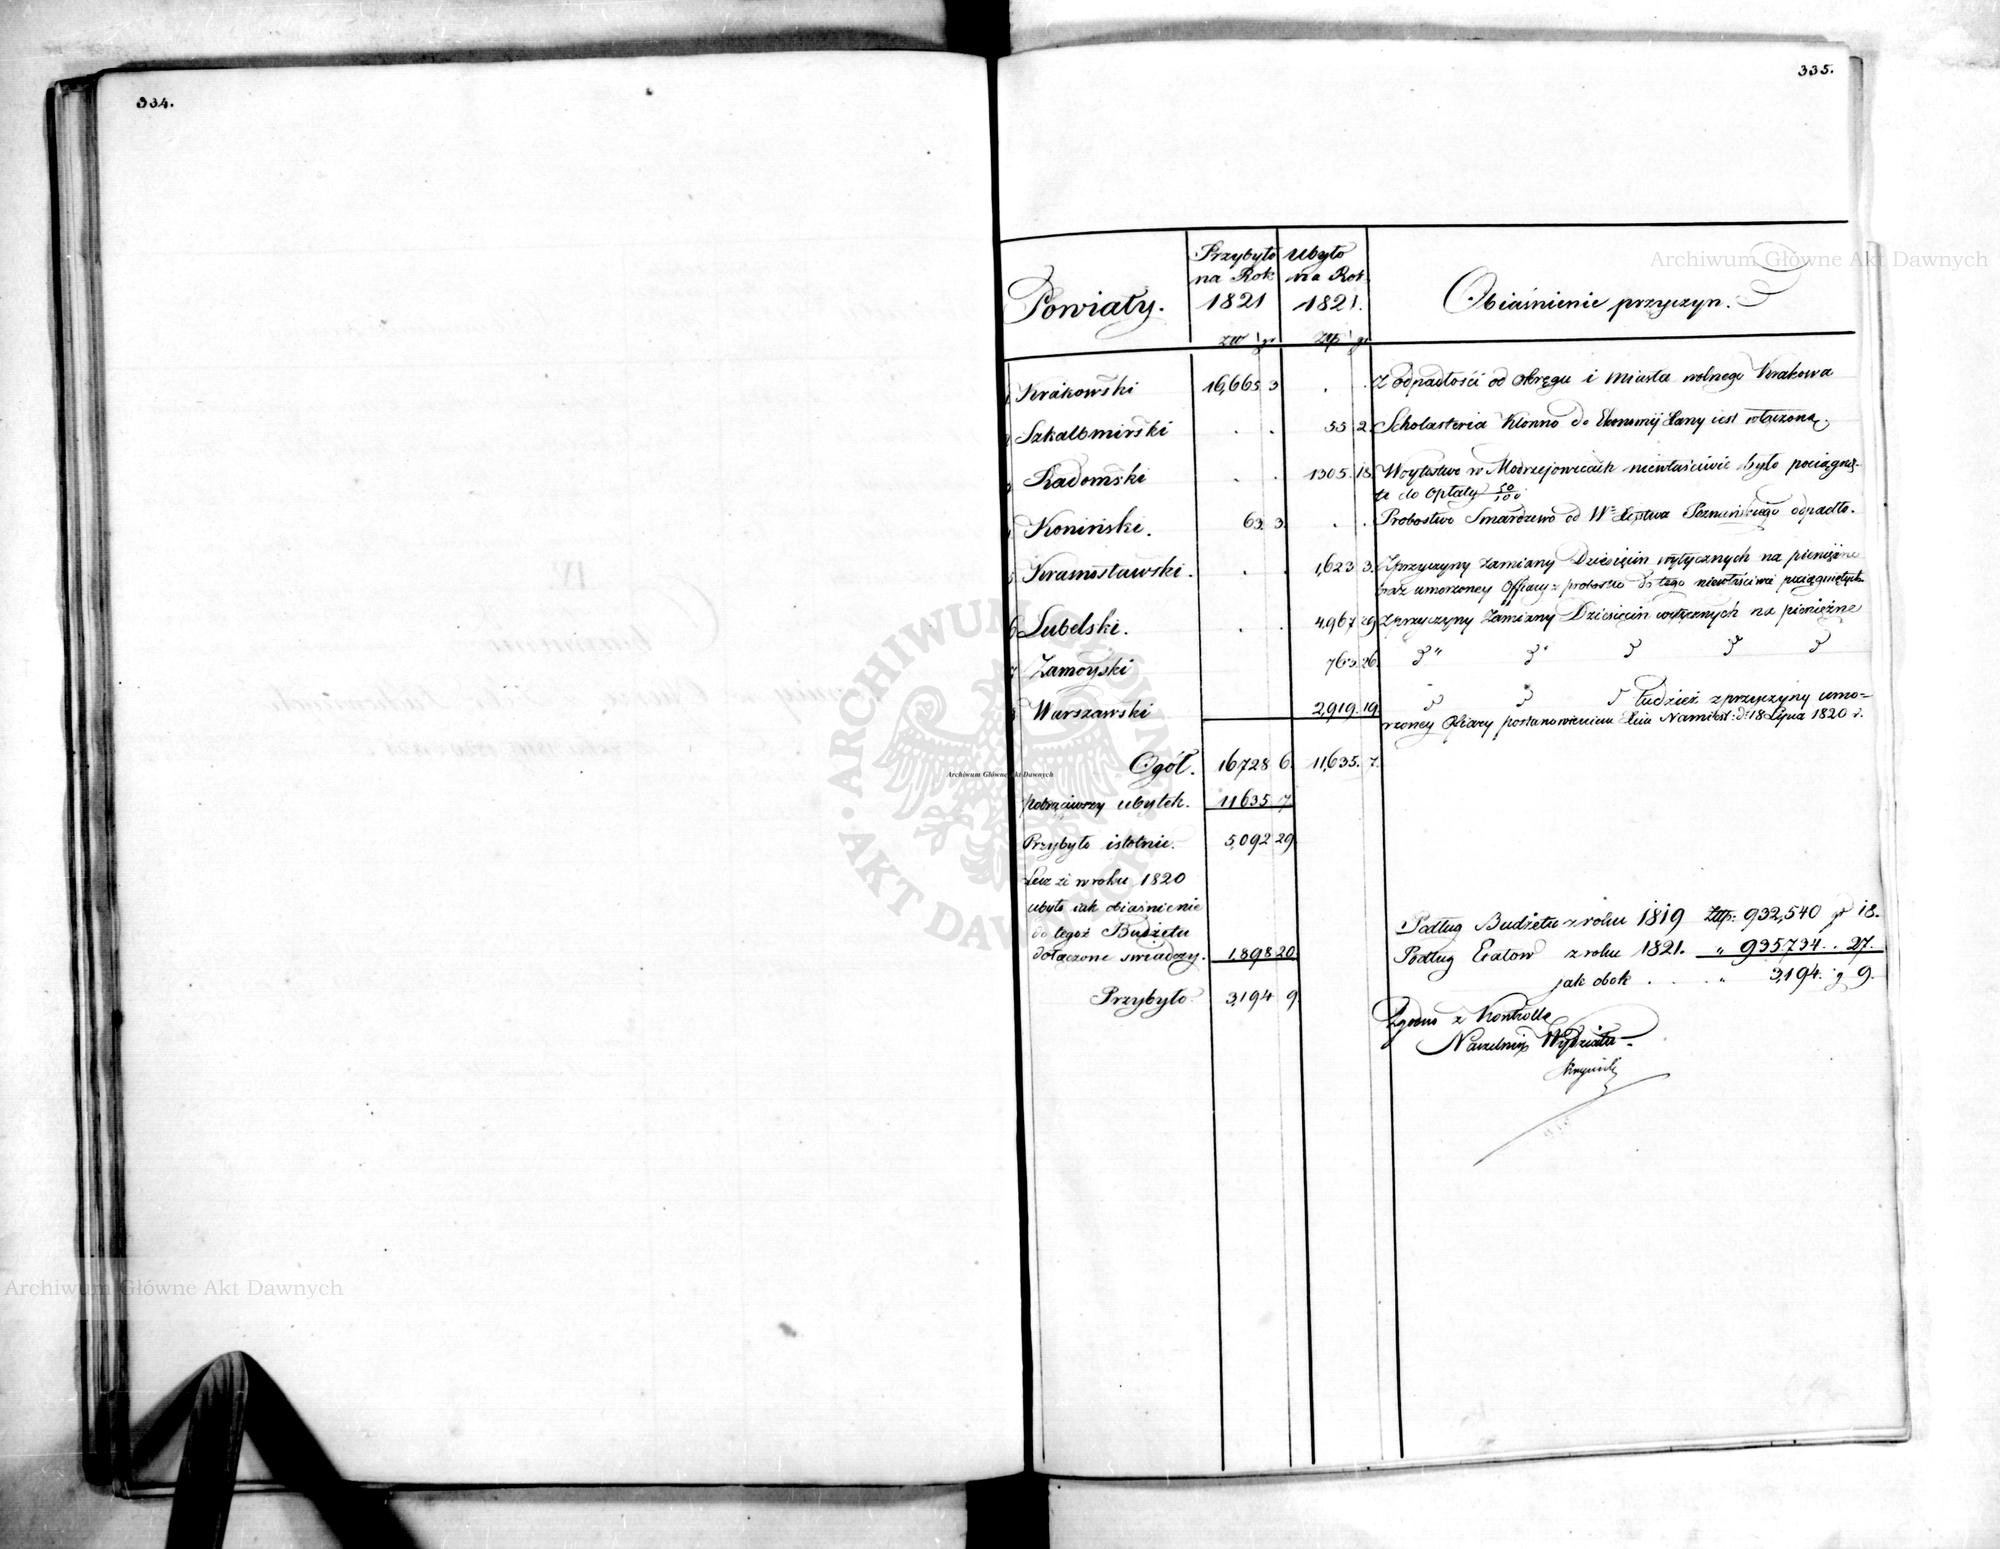 334.
335.
Archiwum Główne Akt Dawnych
Powiaty. Przybyło na Rok 1821 Ubyło na Rok 1821. Obiaśnienie przyczyn.
złp gr złp gr
1 Krakowski 16,665 3 . . Z odpadłości od okręgu i miasta wolnego Krakowa
2 Szkalbmirski . . 55 2 Scholasteria Klonno do Ekonomij Łany iest włączona.
3 Radomski . . 1305. 18 Woytostwo w Modrzejowicach niewłaściwie było pociągnię-
te do Opłaty 50/100
4 Koniński. 63 3. . . Probostwo Smardzewo od Poznańskiego odpadło.
5 Krasnostawski. . . 1,623 3. Zprzyczyny zamiany Dziesięcin wytycznych na pieniężne
oraz umorzoney Offiary z probostw do tego niewłaściwie pociągniętych
6 Lubelski. . . 4,967 29 Zprzyczyny Zamiany Dziesięcin wytycznych na pieniężne
7 Zamoyski 763. 26.
8 Warszawski 2,919. 19. tudzież z przyczyny umo-
rzoney Ofiary postanowieniem Xcia Namiest: d: 18 Lipca 1820 r.
Ogół. 16728 6. 11,635. 7.
potrąciwszy ubytek. 11635 7
Przybyło istotnie. 5,092 29.
Lecz że w roku 1820
ubyło iak obiaśnienie
do tegoż Budżetu
dołączone świadczy. 1,898 20.
Przybyło 3,194 9.
Podług Budżetu z roku 1819 Złp: 932,540 gr 18.
Podług Etatów z roku 1821. " 935734. . 27.
jak obok . . . " 3,194. g 9.
Zgodno z Kontrollą
Naczelnik Wydziału
Archiwum Główne Akt Dawnych
ARCHIWUM GŁÓWNE AKT DAWNYCH
Archiwum Główne Akt Dawnych